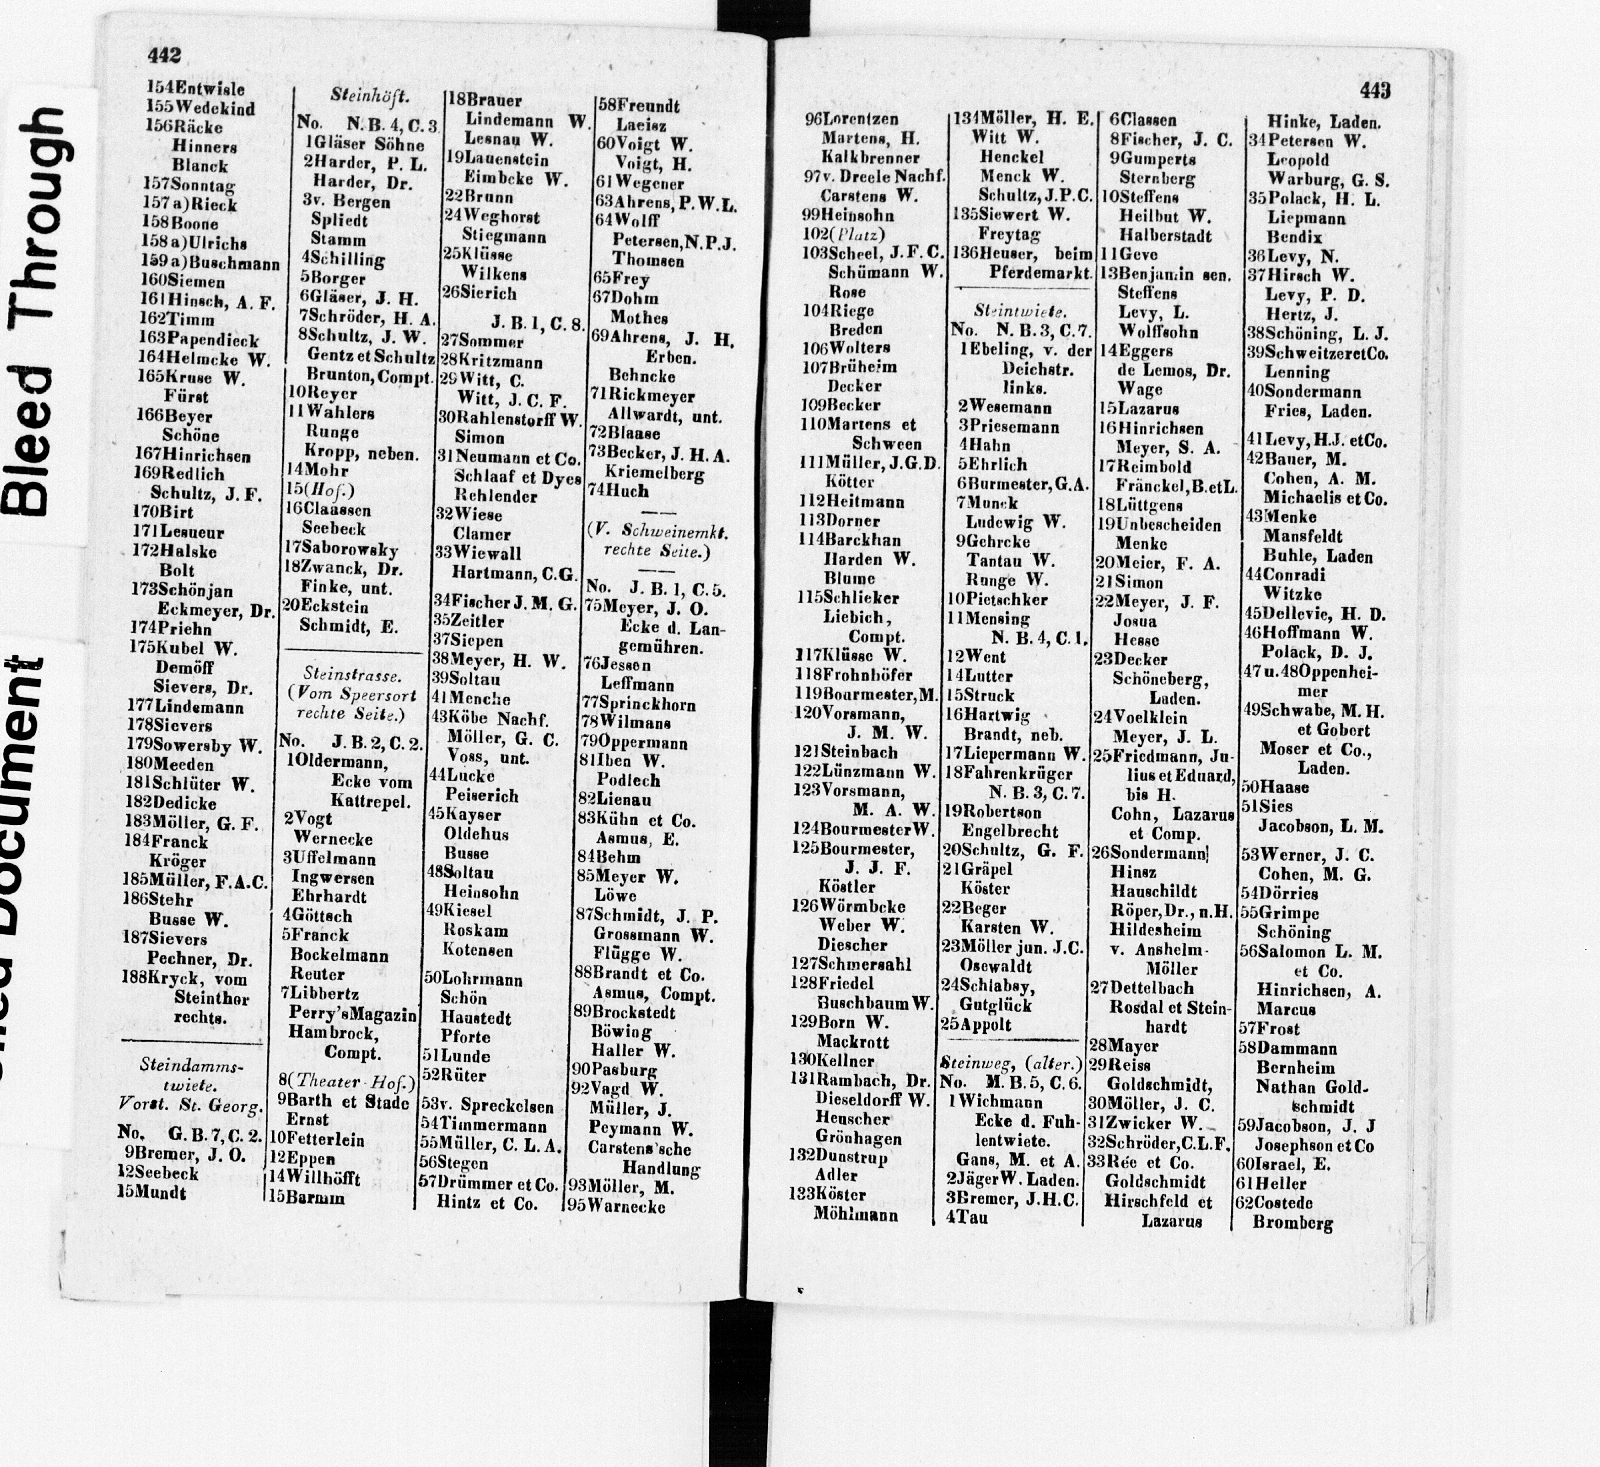 Bleed Through
Document
442
154 Entwisle
155 Wedekind
156 Räcke
Hinners
Blanck
157 Sonntag
157 a) Rieck
158 Boone
158 a) Ulrichs
159 a) Buschmann
160 Siemen
161 Hinsch, A. F.
162 Timm
163 Papendieck
164 Helmcke W.
165 Kruse W.
Fürst
166 Beyer
Schöne
167 Hinrichsen
169 Redlich
Schultz, J. F.
170 Birt
171 Lesueur
172 Halske
Bolt
173 Schönjan
Eckmeyer, Dr.
174 Priehn
175 Kubel W.
Demöff
Sievers, Dr.
177 Lindemann
178 Sievers
179 Sowersby W.
180 Meeden
181 Schlüter W.
182 Dedicke
183 Möller, G. F.
184 Franck
Kröger
185 Müller, F.A.C.
186 Stehr
Busse W.
187 Sievers
Pechner, Dr.
188 Kryck, vom
Steinthor
rechts.
Steindamms-
twiete.
Vorst. St. Georg.
No. G. B. 7, C. 2.
9 Bremer, J. O.
12 Seebeck
15 Mundt
Steinhöft.
No. N. B. 4, C. 3
1 Gläser Söhne
2 Harder, P. L.
Harder, Dr.
3 v. Bergen
Spliedt
Stamm
4 Schilling
5 Borger
6 Gläser, J. H.
7 Schröder, H. A.
8 Schultz, J. W.
Gentz et Schultz
Brunton, Compt.
10 Reyer
11 Wahlers
Runge
Kropp, neben.
14 Mohr
15 (Hof.)
16 Claassen
Seebeck
17 Saborowsky
18 Zwanck, Dr.
Finke, unt.
20 Eckstein
Schmidt, E.
Steinstrasse.
(Vom Speersort
rechte Seite.)
No. J. B. 2, C. 2.
1 Oldermann,
Ecke vom
Kattrepel.
2 Vogt
Wernecke
3 Uffelmann
Ingwersen
Ehrhardt
4 Göttsch
5 Franck
Bockelmann
Reuter
7 Libbertz
Perry's Magazin
Hambrock,
Compt.
8 (Theater-Hof.)
9 Barth et Stade
Ernst
10 Fetterlein
12 Eppen
14 Willhöfft
15 Barmm
18 Brauer
Lindemann W.
Lesnau W.
19 Lauenstein
Eimbcke W.
22 Brunn
24 Weghorst
Stiegmann
25 Klüsse
Wilkens
26 Sierich
J. B. 1, C. 8.
27 Sommer
28 Kritzmann
29 Witt, C.
Witt, J. C. F.
30 Rahlenstorff W.
Simon
31 Neumann et Co.
Schlaaf et Dyes
Rehlender
32 Wiese
Clamer
33 Wiewall
Hartmann, C.G.
34 Fischer J. M. G.
35 Zeitler
37 Siepen
38 Meyer, H. W.
39 Soltau
41 Menche
43 Köbe Nachf.
Möller, G. C.
Voss, unt.
44 Lucke
Peiserich
45 Kayser
Oldehus
Busse
48 Soltau
Heinsohn
49 Kiesel
Roskam
Kotensen
50 Lohrmann
Schön
Haustedt
Pforte
51 Lunde
52 Rüter
53 v. Spreckelsen
54 Timmermann
55 Müller, C. L. A.
56 Stegen
57 Drümmer et Co.
Hintz et Co.
58 Freundt
Laeisz
60 Voigt W.
Voigt, H.
61 Wegener
63 Ahrens, P.W.L.
64 Wolff
Petersen, N.P.J.
Thomsen
65 Frey
67 Dohm
Mothes
69 Ahrens, J. H.
Erben.
Behncke
71 Rickmeyer
Allwardt, unt.
72 Blaase
73 Becker, J. H. A.
Kriemelberg
74 Huch
(V. Schweinemkt.
rechte Seite.)
No. J. B. 1, C. 5.
75 Meyer, J. O.
Ecke d. Lan-
gemühren.
76 Jessen
Leffmann
77 Sprinckhorn
78 Wilmans
79 Oppermann
81 Iben W.
Podlech
82 Lienau
83 Kühn et Co.
Asmus, E.
84 Behm
85 Meyer W.
Löwe
87 Schmidt, J. P.
Grossmann W.
Flügge W.
88 Brandt et Co.
Asmus, Compt.
89 Brockstedt
Böwing
Haller W.
90 Pasburg
92 Vagd W.
Müller, J.
Peymann W.
Carstens'sche
Handlung
93 Möller, M.
95 Warnecke
443
96 Lorentzen
Martens, H.
Kalkbrenner
97 v. Dreele Nachf.
Carstens W.
99 Heinsohn
102 (Platz)
103 Scheel, J. F. C.
Schümann W.
Rose
104 Riege
Breden
106 Wolters
107 Brüheim
Decker
109 Becker
110 Martens et
Schween
111 Müller, J.G.D.
Kötter
112 Heitmann
113 Dorner
114 Barckhan
Harden W.
Blume
115 Schlieker
Liebich,
Compt.
117 Klüsse W.
118 Frohnhöfer
119 Bourmester, M.
120 Vorsmann,
J. M. W.
121 Steinbach
122 Lünzmann W.
123 Vorsmann,
M. A. W.
124 Bourmester W.
125 Bourmester,
J. J. F.
Köstler
126 Wörmbcke
Weber W.
Diescher
127 Schmersahl
128 Friedel
Buschbaum W.
129 Born W.
Mackrott
130 Kellner
131 Rambach, Dr.
Dieseldorff W.
Henscher
Grönhagen
132 Dunstrup
Adler
133 Köster
Möhlmann
134 Möller, H. E.
Witt W.
Henckel
Menck W.
Schultz, J.P.C.
135 Siewert W.
Freytag
136 Heuser, beim
Pferdemarkt.
Steintwiete.
No. N. B. 3, C. 7.
1 Ebeling, v. der
Deichstr.
links.
2 Wesemann
3 Priesemann
4 Hahn
5 Ehrlich
6 Burmester, G.A.
7 Munck
Ludewig W.
9 Gehrcke
Tantau W.
Runge W.
10 Pietschker
11 Mensing
N. B. 4, C. 1.
12 Went
14 Lutter
15 Struck
16 Hartwig
Brandt, neb.
17 Liepermann W.
18 Fahrenkrüger
N. B. 3, C. 7.
19 Robertson
Engelbrecht
20 Schultz, G. F.
21 Gräpel
Köster
22 Beger
Karsten W.
23 Möller jun. J.C.
Osewaldt
24 Schlabsy,
Gutglück
25 Appolt
Steinweg, (alter.)
No. M. B. 5, C. 6.
1 Wichmann
Ecke d. Fuh-
lentwiete.
Gans, M. et A.
2 Jäger W. Laden.
3 Bremer, J.H.C.
4 Tau
6 Classen
8 Fischer, J. C.
9 Gumperts
Sternberg
10 Steffens
Heilbut W.
Halberstadt
11 Geve
13 Benjamin sen.
Steffens
Levy, L.
Wolffsohn
14 Eggers
de Lemos, Dr.
Wage
15 Lazarus
16 Hinrichsen
Meyer, S. A.
17 Reimbold
Fränckel, B. et L.
18 Lüttgens
19 Unbescheiden
Menke
20 Meier, F. A.
21 Simon
22 Meyer, J. F.
Josua
Hesse
23 Decker
Schöneberg,
Laden.
24 Voelklein
Meyer, J. L.
25 Friedmann, Ju-
lius et Eduard,
bis H.
Cohn, Lazarus
et Comp.
26 Sondermann
Hinsz
Hauschildt
Röper, Dr., n. H.
Hildesheim
v. Anshelm-
Möller
27 Dettelbach
Rosdal et Stein-
hardt
28 Mayer
29 Reiss
Goldschmidt,
30 Möller, J. C.
31 Zwicker W.
32 Schröder, C.L.F.
33 Rée et Co.
Goldschmidt
Hirschfeld et
Lazarus
Hinke, Laden.
34 Petersen W.
Leopold
Warburg, G. S.
35 Polack, H. L.
Liepmann
Bendix
36 Levy, N.
37 Hirsch W.
Levy, P. D.
Hertz, J.
38 Schöning, L. J.
39 Schweitzer et Co.
Lenning
40 Sondermann
Fries, Laden.
41 Levy, H.J. et Co.
42 Bauer, M.
Cohen, A. M.
Michaelis et Co.
43 Menke
Mansfeldt
Buhle, Laden
44 Conradi
Witzke
45 Dellevie, H. D.
46 Hoffmann W.
Polack, D. J.
47 u. 48 Oppenhei-
mer
49 Schwabe, M. H.
et Gobert
Moser et Co.,
Laden.
50 Haase
51 Sies
Jacobson, L. M.
53 Werner, J. C.
Cohen, M. G.
54 Dörries
55 Grimpe
Schöning
56 Salomon L. M.
et Co.
Hinrichsen, A.
Marcus
57 Frost
58 Dammann
Bernheim
Nathan Gold-
schmidt
59 Jacobson, J. J
Josephson et Co
60 Israel, E.
61 Heller
62 Costede
Bromberg